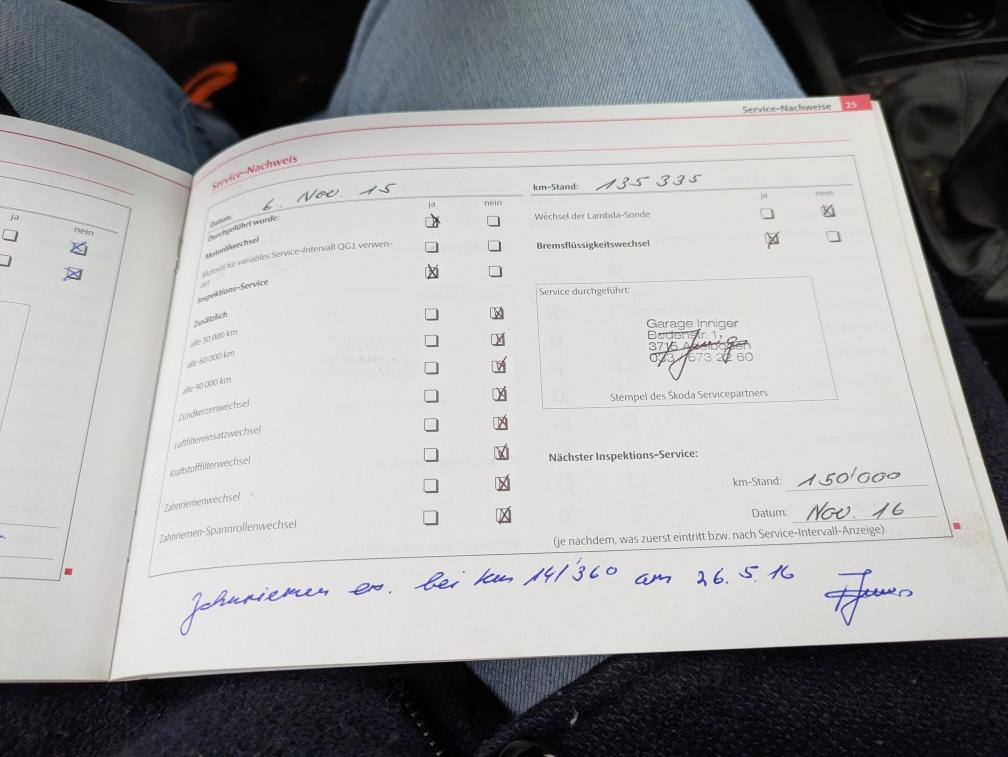 Service-Nachweise 25
Service-Nachweis
Datum: 6. Nov. 15
km-Stand: 135 335
Durchgeführt wurde:
ja nein
Motorölwechsel
Motoröl für variables Service-Intervall QG1 verwen-
det
Inspektions-Service
Zusätzlich
alle 30 000 km
alle 60 000 km
alle 90 000 km
Zündkerzenwechsel
Luftfiltereinsatzwechsel
Kraftstofffilterwechsel
Zahnriemenwechsel
Zahnriemen-Spannrollenwechsel
ja nein
Wechsel der Lambda-Sonde
Bremsflüssigkeitswechsel
Service durchgeführt:
Garage Inniger
Bodenstr. 1,
3715
033 / 673 22 60
Stempel des Škoda Servicepartners
Nächster Inspektions-Service:
km-Stand: 150'000
Datum: Nov. 16
(je nachdem, was zuerst eintritt bzw. nach Service-Intervall-Anzeige)
Zahnriemen es. bei km 141'360 am 26.5.16
ja nein